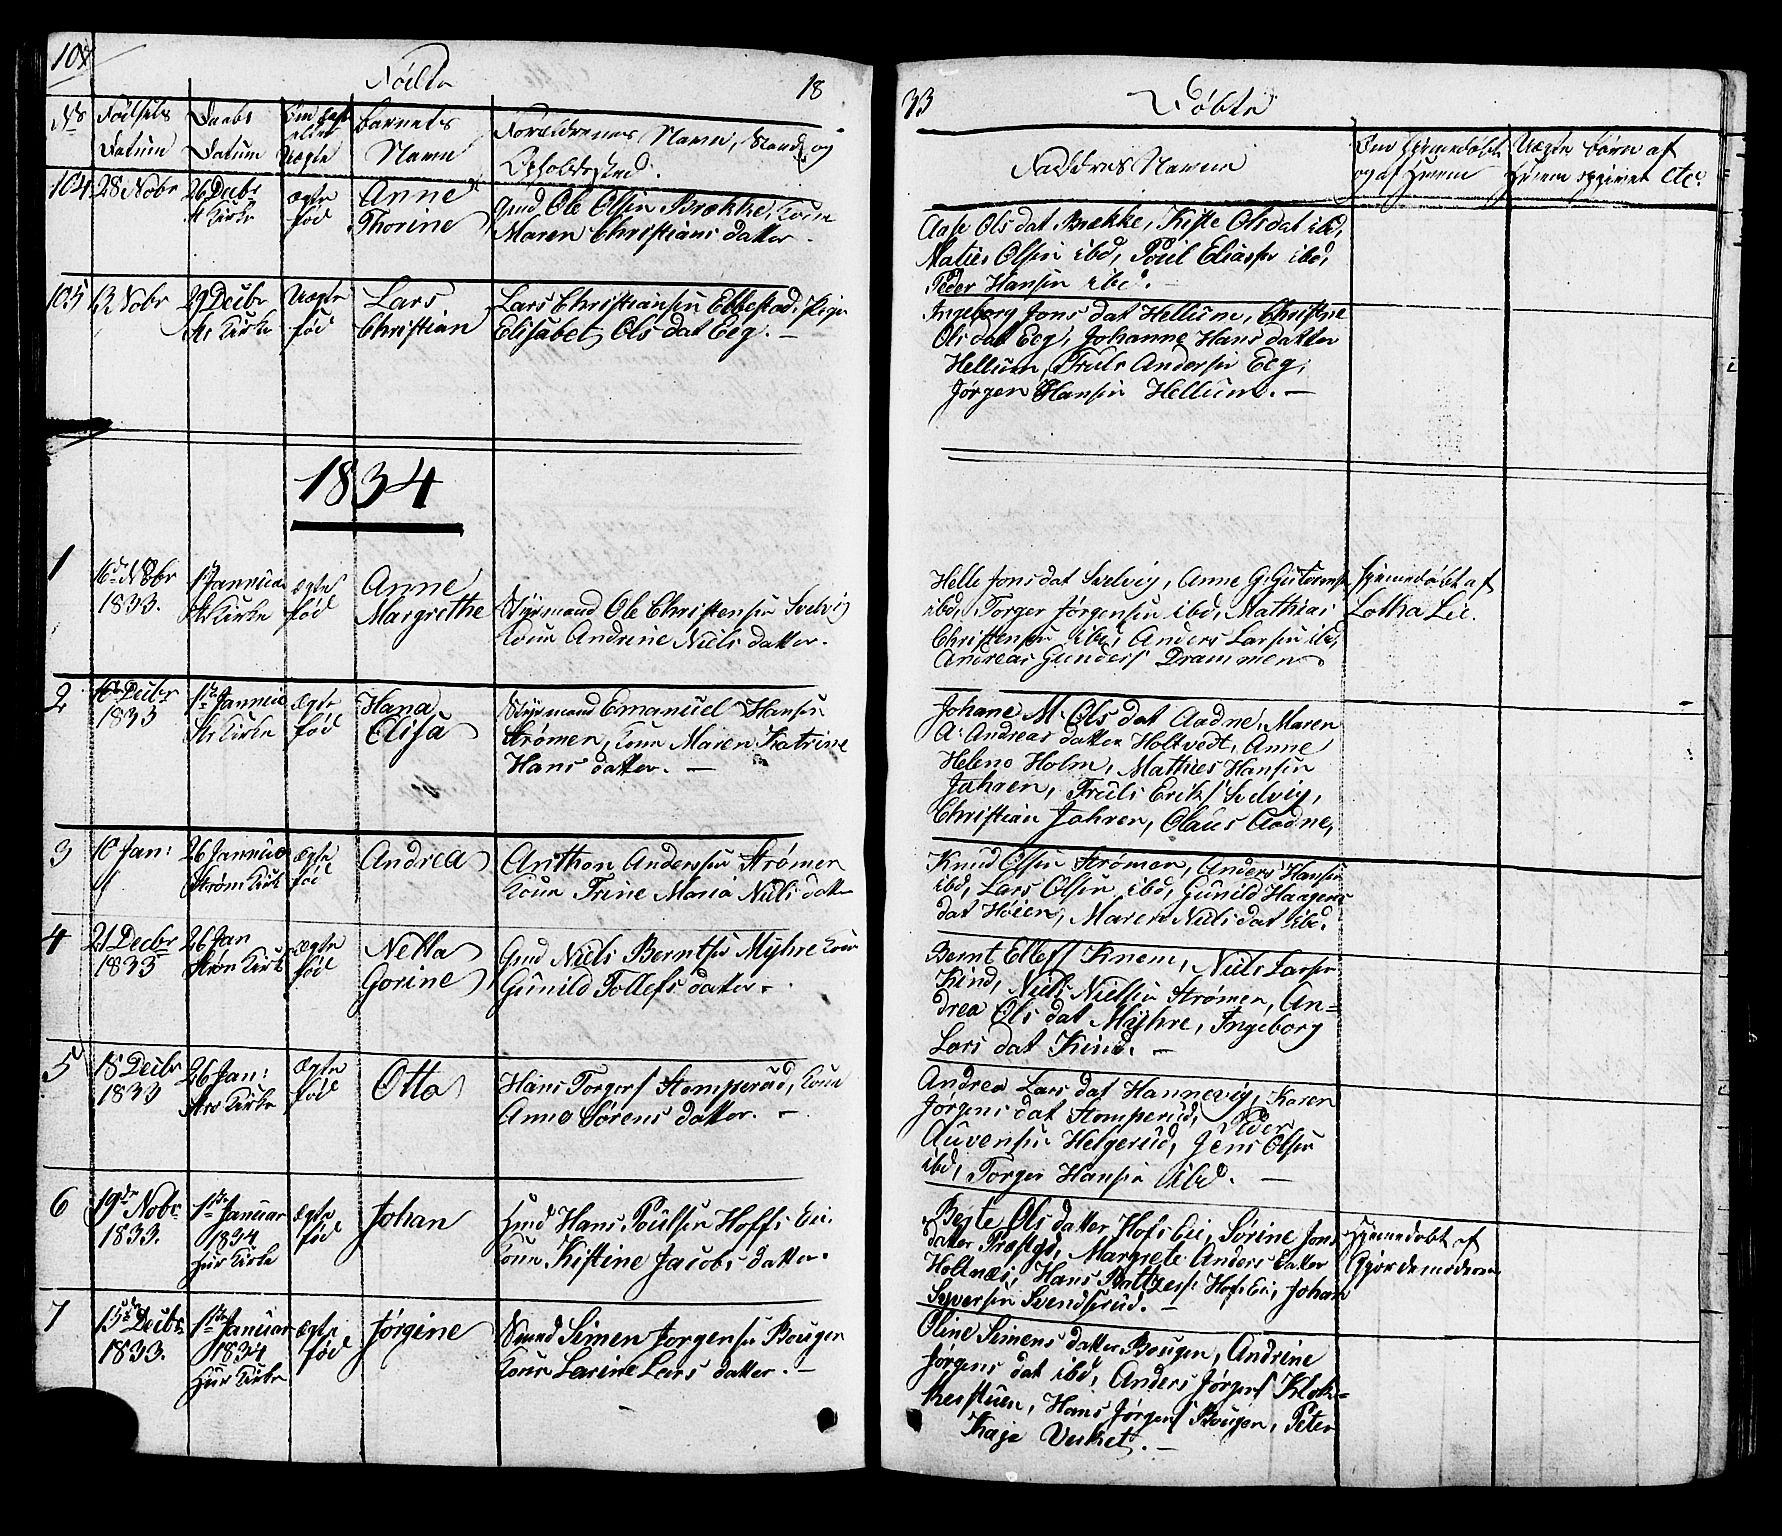 108
Fødte
18
No
Fødsels
Datum
Daabs
Datum
Om ægte
eller
Uægte
Barnets
Navn
Forældrenes Navn, Stand og
Opholdssted.
104
28 Nobr
26 Decbr
St Kirke
ægte
fød
Anne
Thorine
Gmd Ole Olsen Brække, Kone
Maren Christians datter.
105
12 Nobr
29 Decbr
St Kirke
Uægte
fød
Lars
Christian
Lars Christiansen Ebbestad, Pige
Elisabet Ols dat Eeg. —
1834
1
16de Nobr
1833.
1ste Januar
St Kirke
ægte
fød
Anne
Margrethe
Styrmand Ole Christensen Svelvig
Kone Andrene Niels datter.
2
16de Decbr
1833
1ste Januar
St Kirke
ægte
fød
Hana
Elisa
Styrmand Emanuel Hansen
Strømen, Kone Maren Katrine
Hans datter. —
3
10 Jan:
26 Januar
Strøm Kirk
ægte
fød
Andrea
Anthon Andersen Strømen
Kone Trine Maria Niels datter
4
21 Decbr
1833
26 Jan
Strøm Kirk
ægte
fød
Nella
Gorine
Gmd Niels Berntsen Myhre Kone
Gunild Tollefs datter.
5
18 Decbr
1833
26 Jan:
St Kirke
ægte
fød
Otto
Hans Torgers Stomperud, Kone
Anne Sørens datter. —
6
19de Nobr
1833.
1ste Januar
1834
Hur Kirke
ægte
fød
Johan
Hmd Hans Poulsen Hoffs Eie.
Kone Kistine Jacobs datter.
7
15de Decbr
1833.
1ste Januar
1834
Hur Kirke
ægte
fød
Jørgine
Smed Simen Jørgensen Bougen
Kone Larine Lars datter. —
33
Døbte
Faddernes Navne
Om Hjemmedøbt
og af Hvem
Uægte børn af
Hvem opgivet etc.
Aase Ols dat Brække, Kiste Ols dat ibd,
Maties Olsen ibd, Poul Eliassen ibd,
Peder Hansen ibd. —
Ingeborg Jons dat Hellum, Christine
Ols dat Eeg, Johanne Hans datter
Hellum, Truls Andersen Eeg,
Jørgen Hansen Hellum. —
Helle Jons dat Svelvig, Anne G. Gutorms
ibd, Torger Jørgensen ibd, Mathias
Christensen ibd, Anders Larsen ibd,
Andreas Gunders Drammen
Hjemmedøbt af
Lotha Lie.
Johane M. Ols dat Aadne, Maren
A. Andreas datter Holtvedt, Anne
Helene Holm, Mathies Hansen
Jahren, Truls Eriks Svelvig,
Christian Jahren, Olaus Aadne,
Knud Olsen Strømen, Anders Hansen
ibd, Lars Olsen ibd, Gunild Haagens
dat Høien, Maren Niels dat ibd.
Bernt Ellefs Knem, Niels Larsen
Kind, Niels Nielsen Strømen, An=
drea Ols dat Myhre, Ingeborg
Lars dat Kind. —
Andrea Lars dat Hannevig, Karen
Jørgens dat Stomperud, Peder
Auvensen Helgerud, Jens Olsen
ibd, Torger Hansen ibd. —
Beste Ols datter Hofs Eie, Sørine Jons
datter Præstgd, Margrete Anders datter
Holtnæs, Hans Baltzers Hofs Eie, Johan
Syversen Svendsrud. —
Hjemmedøbt af
Gjordemoderen
Oline Simens datter Bougen, Andrine
Jørgens dat ibd, Anders Jørgens Klok=
kerstuen, Hans Jørgens Bougen, Peter
Kaja Verket. —